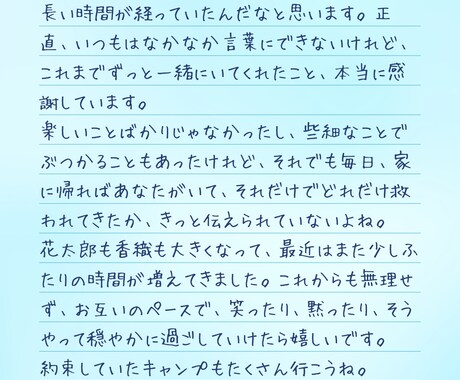 長い時間が経っていたんだなと思います。正
直、いつもはなかなか言葉にできないけれど、
これまでずっと一緒にいてくれたこと、本当に感
謝しています。
楽しいことばかりじゃなかったし、些細なことで
ぶつかることもあったけれど、それでも毎日、家
に帰ればあなたがいて、それだけでどれだけ救
われてきたか、きっと伝えられていないよね。
花太郎も香織も大きくなって、最近はまた少しふ
たりの時間が増えてきました。これからも無理せ
ず、お互いのペースで、笑ったり、黙ったり、そう
やって穏やかに過ごしていけたら嬉しいです。
約束していたキャンプもたくさん行こうね。